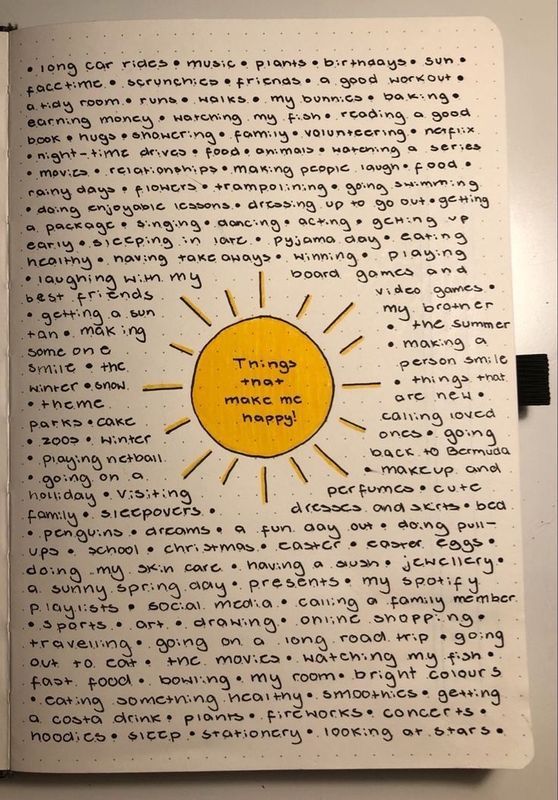 • long car rides • music • plants • birthdays • sun •
facetime • scrunchies • friends • a good workout •
a tidy room • runs • walks • my bunnies • baking •
earning money • watching my fish • reading a good
book • hugs • showering • family • volunteering • netflix
• night-time drives • food • animals • watching a series
• movies • relationships • making people laugh • food •
rainy days • flowers • trampolining • going swimming
• doing enjoyable lessons • dressing up to go out • getting
a package • singing • dancing • acting • getting up
early • sleeping in late • pyjama day • eating
healthy • having takeaways • winning • playing
• laughing with my board games and
best friends video games •
• getting a sun my brother
tan • making • the summer
some one • making a
smile • the person smile
winter • snow • things that
• theme are new •
parks • cake calling loved
• zoos • winter ones • going
• playing netball back to Bermuda
• going on a • makeup and
holliday • visiting perfumes • cute
family • sleepovers • dresses and skirts • bed
Things
that
make me
happy!
• penguins • dreams • a fun day out • doing pull-
ups • school • christmas • easter • easter eggs •
doing my skin care • having a slush • jewellery •
a sunny spring day • presents • my spotify
playlists • social media • calling a family member
• sports • art • drawing • online shopping •
travelling • going on a long road trip • going
out to eat • the movies • watching my fish •
fast food • bowling • my room • bright colours
• eating something healthy • smoothies • getting
a costa drink • plants • fireworks • concerts •
hoodies • sleep • stationery • looking at stars •